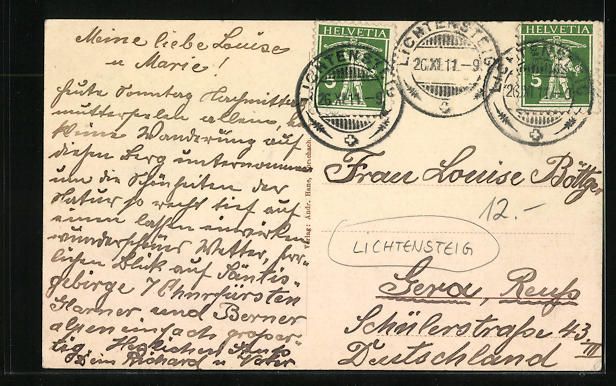 Meine liebe Louise
u Marie!
Heute Sonntag Nachmittag
mutterseelen allein,
kleine Wanderung auf
diesen Berg unternommen
um die Schönheiten der
Natur so recht tief auf
einen lassen einwirken
wunderschönes Wetter, herr-
lichen Blick auf Säntis-
gebirge 7 Churfürsten
Glarner und Berner
alpen einfach gross-
artig. Herzlichen Gruss
Dein Richard u. Vater
Verlag: Andr. Hane, Rorschach
HELVETIA
5
HELVETIA
5
LICHTENSTEIG
26.XI.11.-9
LICHTENSTEIG
26.XI.11.-9
LICHTENSTEIG
26.XI.11.-9
Frau Louise Böttge
12.-
LICHTENSTEIG
Gera, Reuß
Schülerstraße 43 III
Deutschland